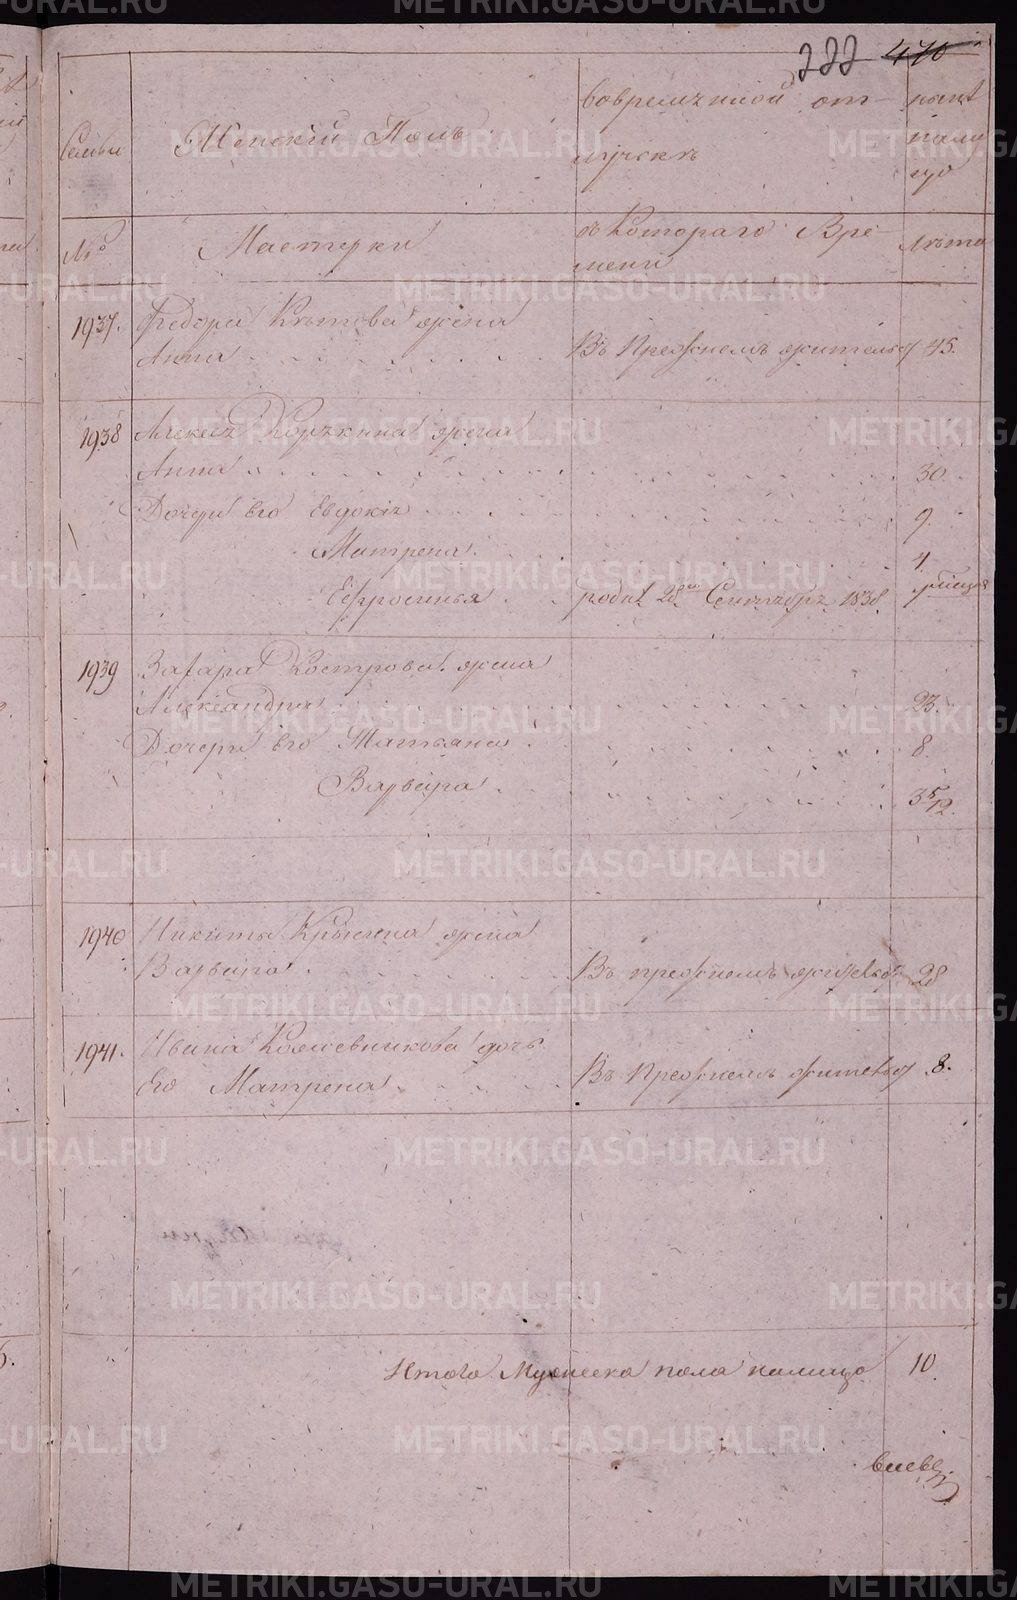 222 470
Семьи
Женскій Полъ
вовременной от-
лучкѣ
ныне
на лицо
№
Мастерки
съ Котораго Вре-
мени
лѣта
1937. Федора Кѣтова жена
Анна Въ Прежнемъ жительст 45.
1938 Алексея жена
Анна 30
Дочери его Евдокія 9
Матрена 4
Ефросинья родил 28го Сентября 1838
1939 Захара Кострова жена
Александра 23
Дочери его Татьяна 8
Варвара 3 5/12
1940 Никиты жена
Варвара Въ прежнемъ жительст 28
1941. Ивана Кожевникова дочь
Его Матрена Въ Прежнемъ жительст 8.
Итого Мужеска пола налицо 10
METRIKI.GASO-URAL.RU